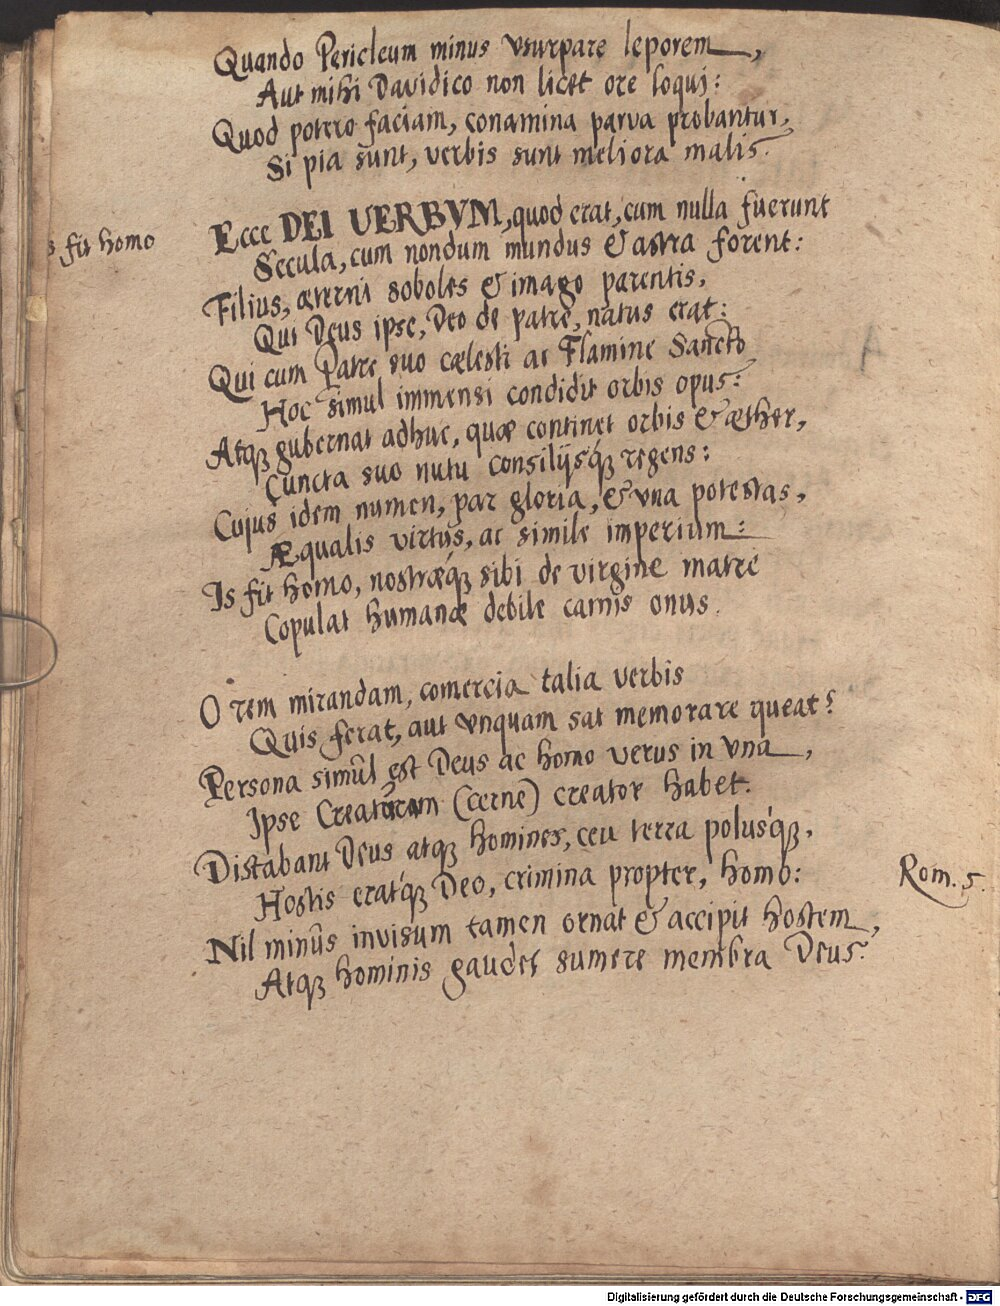 Quando Pericleum minus vsurpare leporem,
Aut mihi Davidico non licet ore loqui:
Quod potero faciam, conamina parva probantur,
Si pia sunt, verbis sunt meliora malis.
Ecce DEI VERBVM, quod erat, cum nulla fuerunt
s fit homo
Secula, cum nondum mundus & astra forent:
Filius, æterni soboles & imago parentis,
Qui Deus ipse, Deo de patre, natus erat:
Qui cum Patre suo cælesti ac Flamine Sancto
Hoc simul immensi condidit orbis opus:
Atq́ꝫ gubernat adhuc, quæ continet orbis & æther,
Cuncta suo nutu consilijsq́ꝫ regens:
Cujus idem numen, par gloria, & vna potestas,
Æqualis virtus, ac simile imperium:
Is fit homo, nostræq́ꝫ sibi de virgine matre
Copulat humanæ debile carnis onus.
O rem mirandam, comercia talia verbis
Quis ferat, aut vnquam sat memorare queat?
Persona simul est Deus ac homo verus in vna,
Ipse Creaturam (cerne) creator habet.
Distabant Deus atqꝫ homines, ceu terra polusq́ꝫ,
Hostis eratq́ꝫ Deo, crimina propter, homo:
Rom. 5.
Nil minus invisum tamen ornat & accipit hostem,
Atqꝫ hominis gaudet sumere membra Deus.
Digitalisierung gefördert durch die Deutsche Forschungsgemeinschaft - DFG